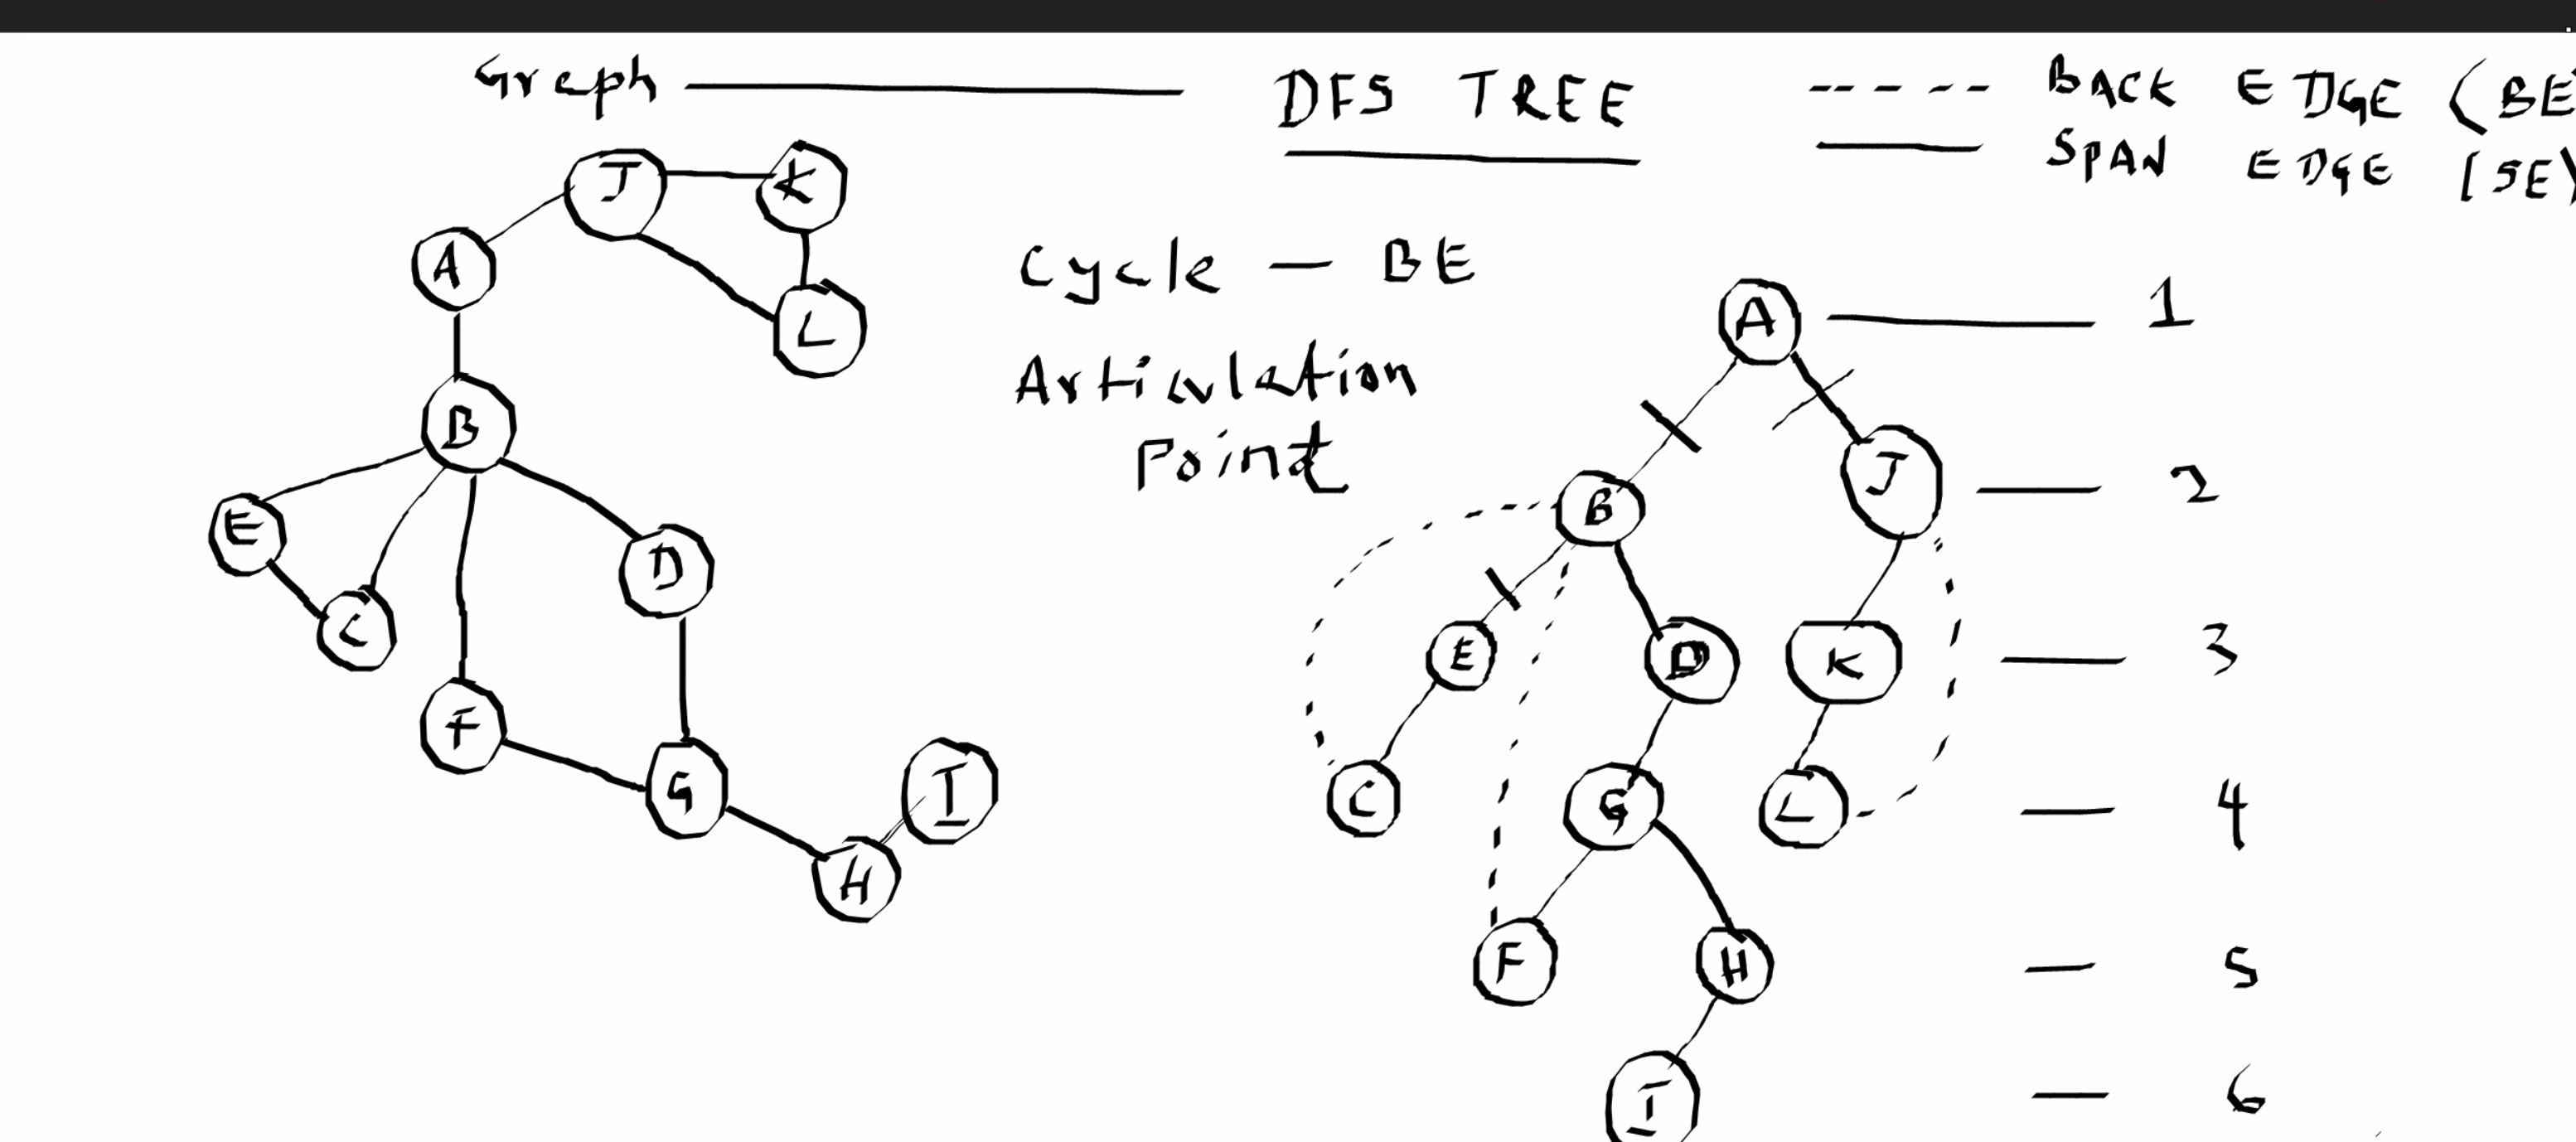 Graph
DFS TREE
BACK EDGE (BE
SPAN EDGE (SE)
J
K
A
L
B
E
C
D
F
G
I
H
Cycle - BE
Articulation
Point
A 1
B
J 2
E
D
K 3
C
G
L 4
F
H 5
I 6